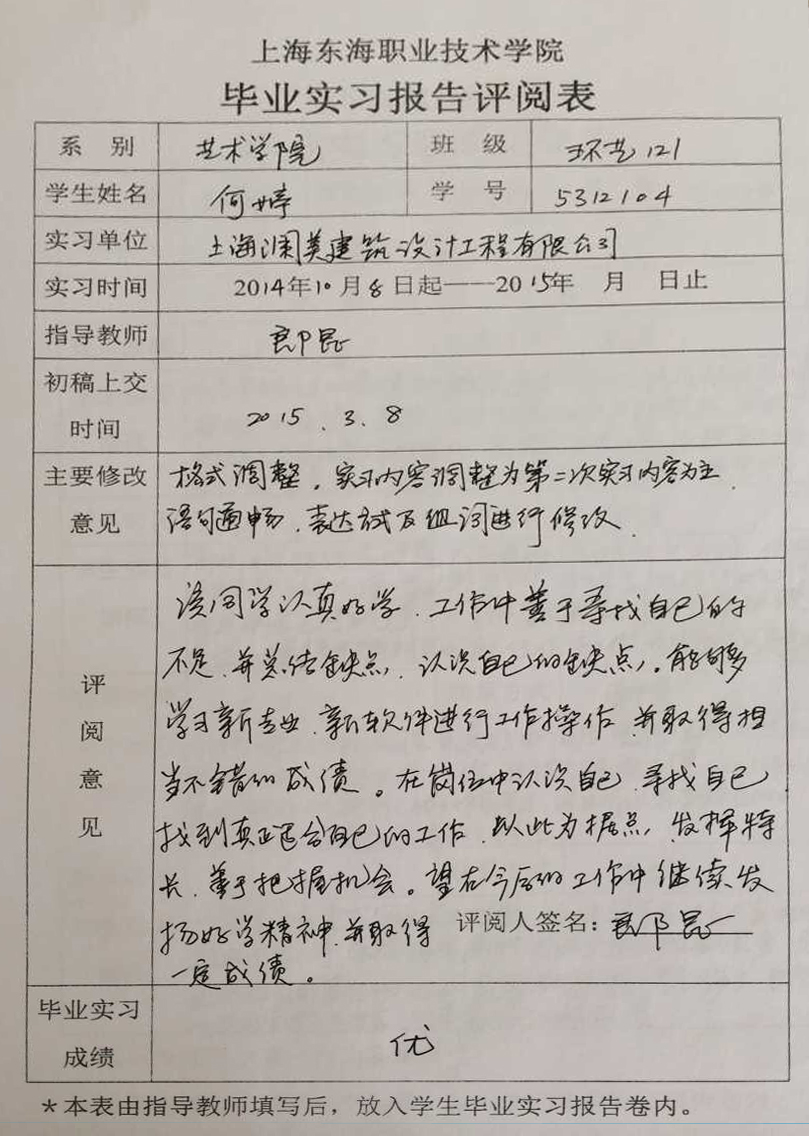 上海东海职业技术学院
毕业实习报告评阅表
系 别 艺术学院 班 级 环艺121
学生姓名 何婷 学 号 5312104
实习单位 上海澜美建筑设计工程有限公司
实习时间 2014年10月8日起——2015年 月 日止
指导教师
初稿上交
时间
2015.3.8
主要修改
意见
格式调整。实习内容调整为第二次实习内容为主.
语句通畅、表达方式及组词进行修改.
评阅意见
该同学认真好学、工作中善于寻找自己的
不足、并总结缺点、认识自己的缺点。能够多
学习新专业、新软件进行工作操作、并取得相
当不错的成绩。在岗位中认识自己、寻找自己
找到真正适合自己的工作、以此为据点、发挥特
长、善于把握机会。望在今后的工作中继续发
扬好学精神、并取得 评阅人签名:
一定成绩。
毕业实习
成绩
优
*本表由指导教师填写后，放入学生毕业实习报告卷内。